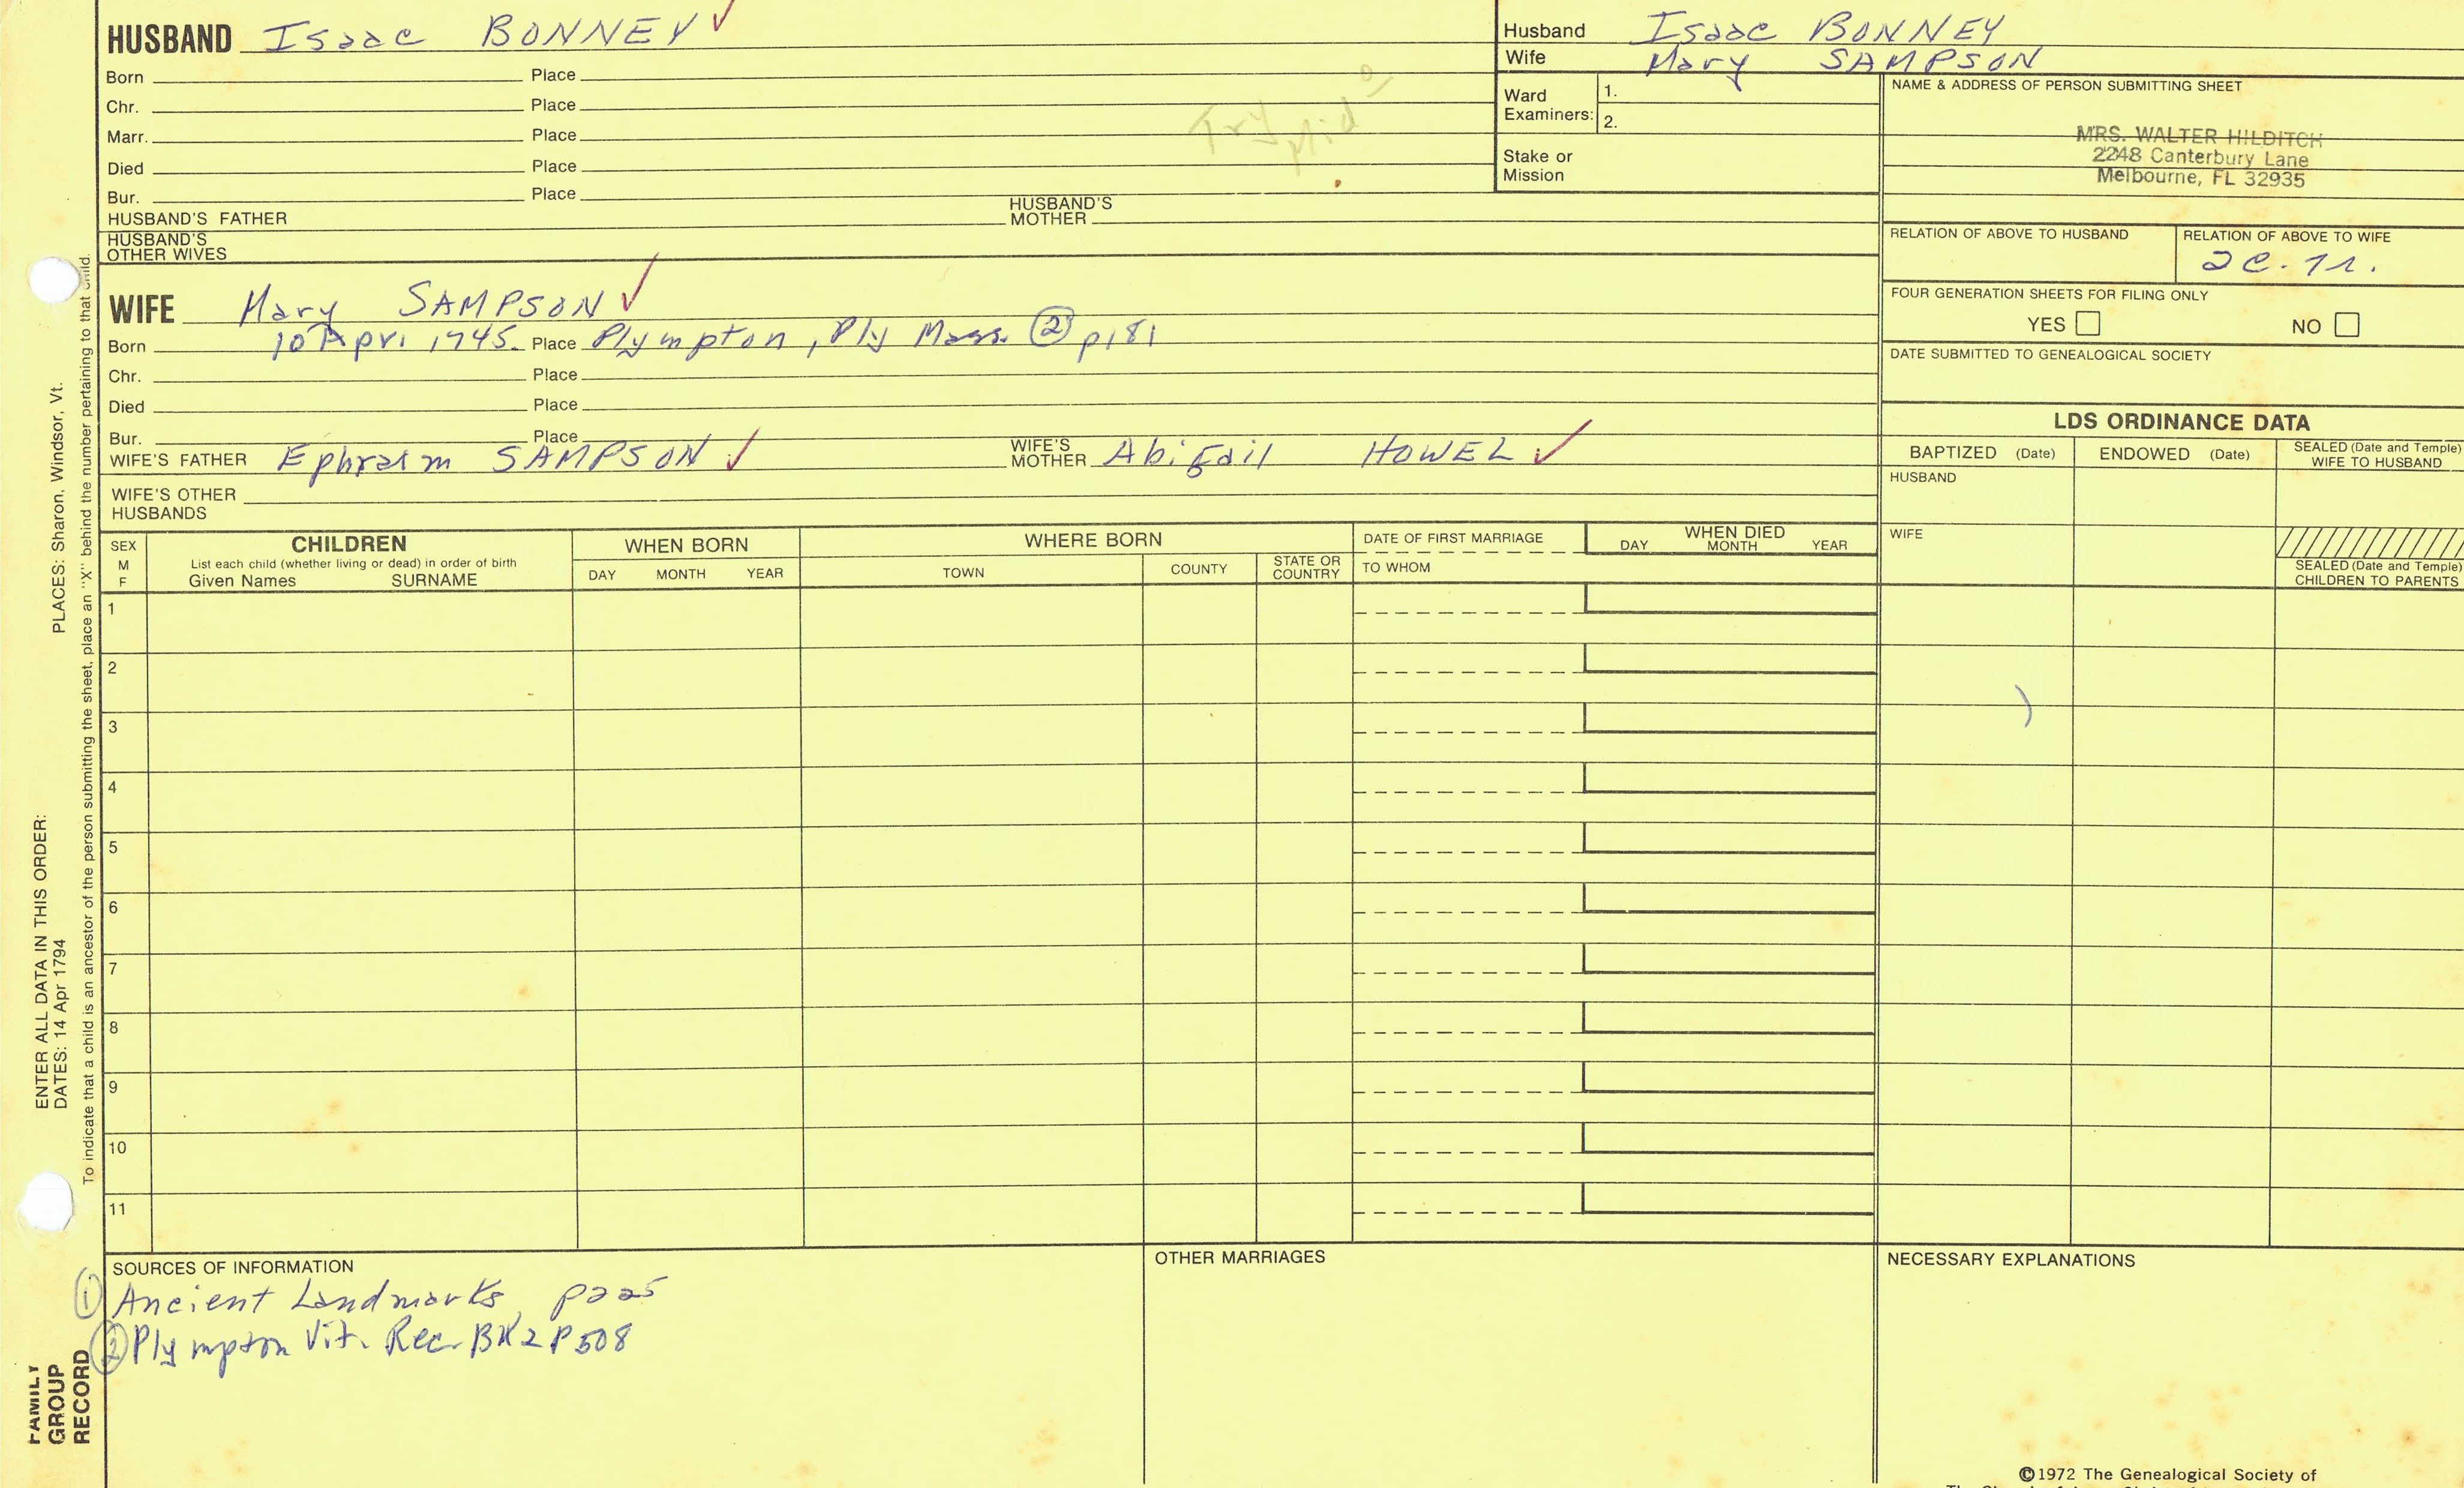 HUSBAND Isaac BONNEY ✓
Born Place
Chr. Place
Marr. Place
Died Place
Bur. Place
HUSBAND'S FATHER HUSBAND'S MOTHER
HUSBAND'S OTHER WIVES
Husband Isaac BONNEY
Wife Mary SAMPSON
Ward Examiners: 1.
2.
Stake or Mission
NAME & ADDRESS OF PERSON SUBMITTING SHEET
MRS. WALTER HILDITCH
2248 Canterbury Lane
Melbourne, FL 32935
RELATION OF ABOVE TO HUSBAND RELATION OF ABOVE TO WIFE
2C.
FOUR GENERATION SHEETS FOR FILING ONLY
YES NO
DATE SUBMITTED TO GENEALOGICAL SOCIETY
WIFE Mary SAMPSON ✓
Born 10 Apri 1745 Place Plympton, Ply Mass. ② p181
Chr. Place
Died Place
Bur. Place
WIFE'S FATHER Ephraim SAMPSON ✓ WIFE'S MOTHER Abigail HOWEL ✓
WIFE'S OTHER HUSBANDS
LDS ORDINANCE DATA
BAPTIZED (Date) ENDOWED (Date) SEALED (Date and Temple) WIFE TO HUSBAND
HUSBAND
WIFE
SEALED (Date and Temple) CHILDREN TO PARENTS
SEX M F
CHILDREN
List each child (whether living or dead) in order of birth
Given Names SURNAME
WHEN BORN
DAY MONTH YEAR
WHERE BORN
TOWN COUNTY STATE OR COUNTRY
DATE OF FIRST MARRIAGE
TO WHOM
WHEN DIED
DAY MONTH YEAR
1
2
3
4
5
6
7
8
9
10
11
SOURCES OF INFORMATION
① Ancient Landmarks, p225
② Plympton Vit. Rec. BK2 P508
OTHER MARRIAGES
NECESSARY EXPLANATIONS
©1972 The Genealogical Society of
PLACES: Sharon, Windsor, Vt.
ENTER ALL DATA IN THIS ORDER:
DATES: 14 Apr 1794
To indicate that a child is an ancestor of the person submitting the sheet, place an "X" behind the number pertaining to that child.
FAMILY
GROUP
RECORD